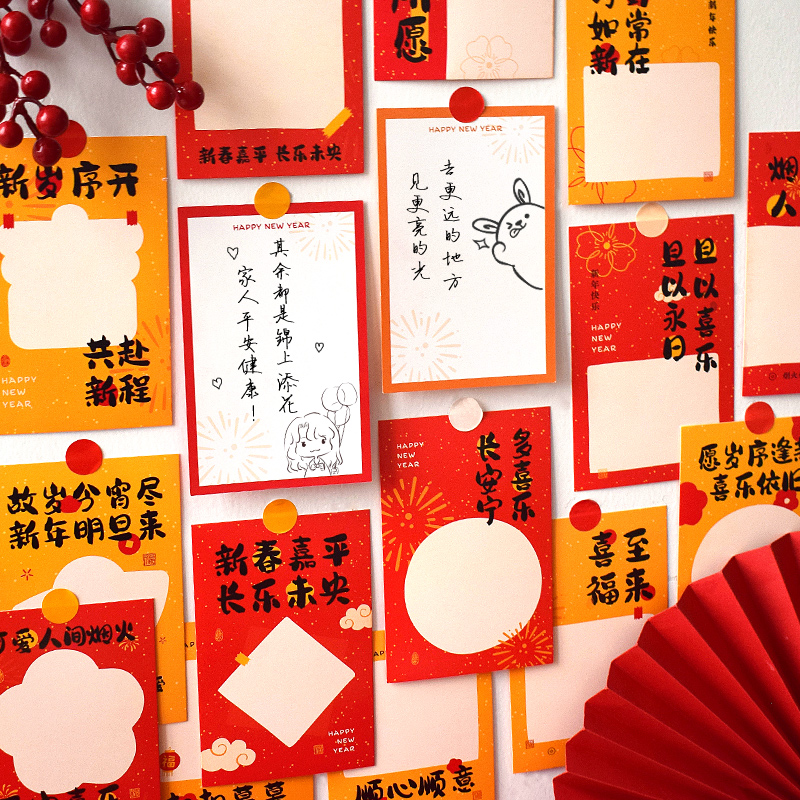 新春嘉平 长乐未央
如常在
新年快乐
新岁序开
共赴
新程
HAPPY
NEW
YEAR
HAPPY NEW YEAR
其余都是锦上添花
家人平安健康！
HAPPY NEW YEAR
去更远的地方
见更亮的光
旦以喜乐
旦以永日
新年快乐
HAPPY
NEW
YEAR
故岁今宵尽
新年明旦来
新春嘉平
长乐未央
HAPPY
NEW
YEAR
HAPPY
NEW
YEAR
多喜乐
长安宁
喜至
福来
愿岁序逢
喜乐依旧
爱人间烟火
福
顺心顺意